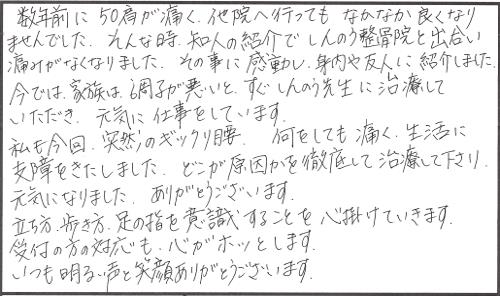 数年前に50肩が痛く、他院へ行ってもなかなか良くなり
ませんでした。そんな時、知人の紹介でしんのう整骨院と出合い
痛みがなくなりました。その事に感動し、身内や友人に紹介しました。
今では、家族は、調子が悪いと、すぐしんのう先生に治療して
いただき、元気に仕事をしています。
私も今回、突然のギックリ腰、何をしても痛く、生活に
支障をきたしました。どこが原因かを徹底して治療して下さり、
元気になりました。ありがとうございます。
立ち方、歩き方、足の指を意識することを心掛けていきます。
受付の方の対応も、心がホッとします。
いつも明るい声と笑顔ありがとうございます。